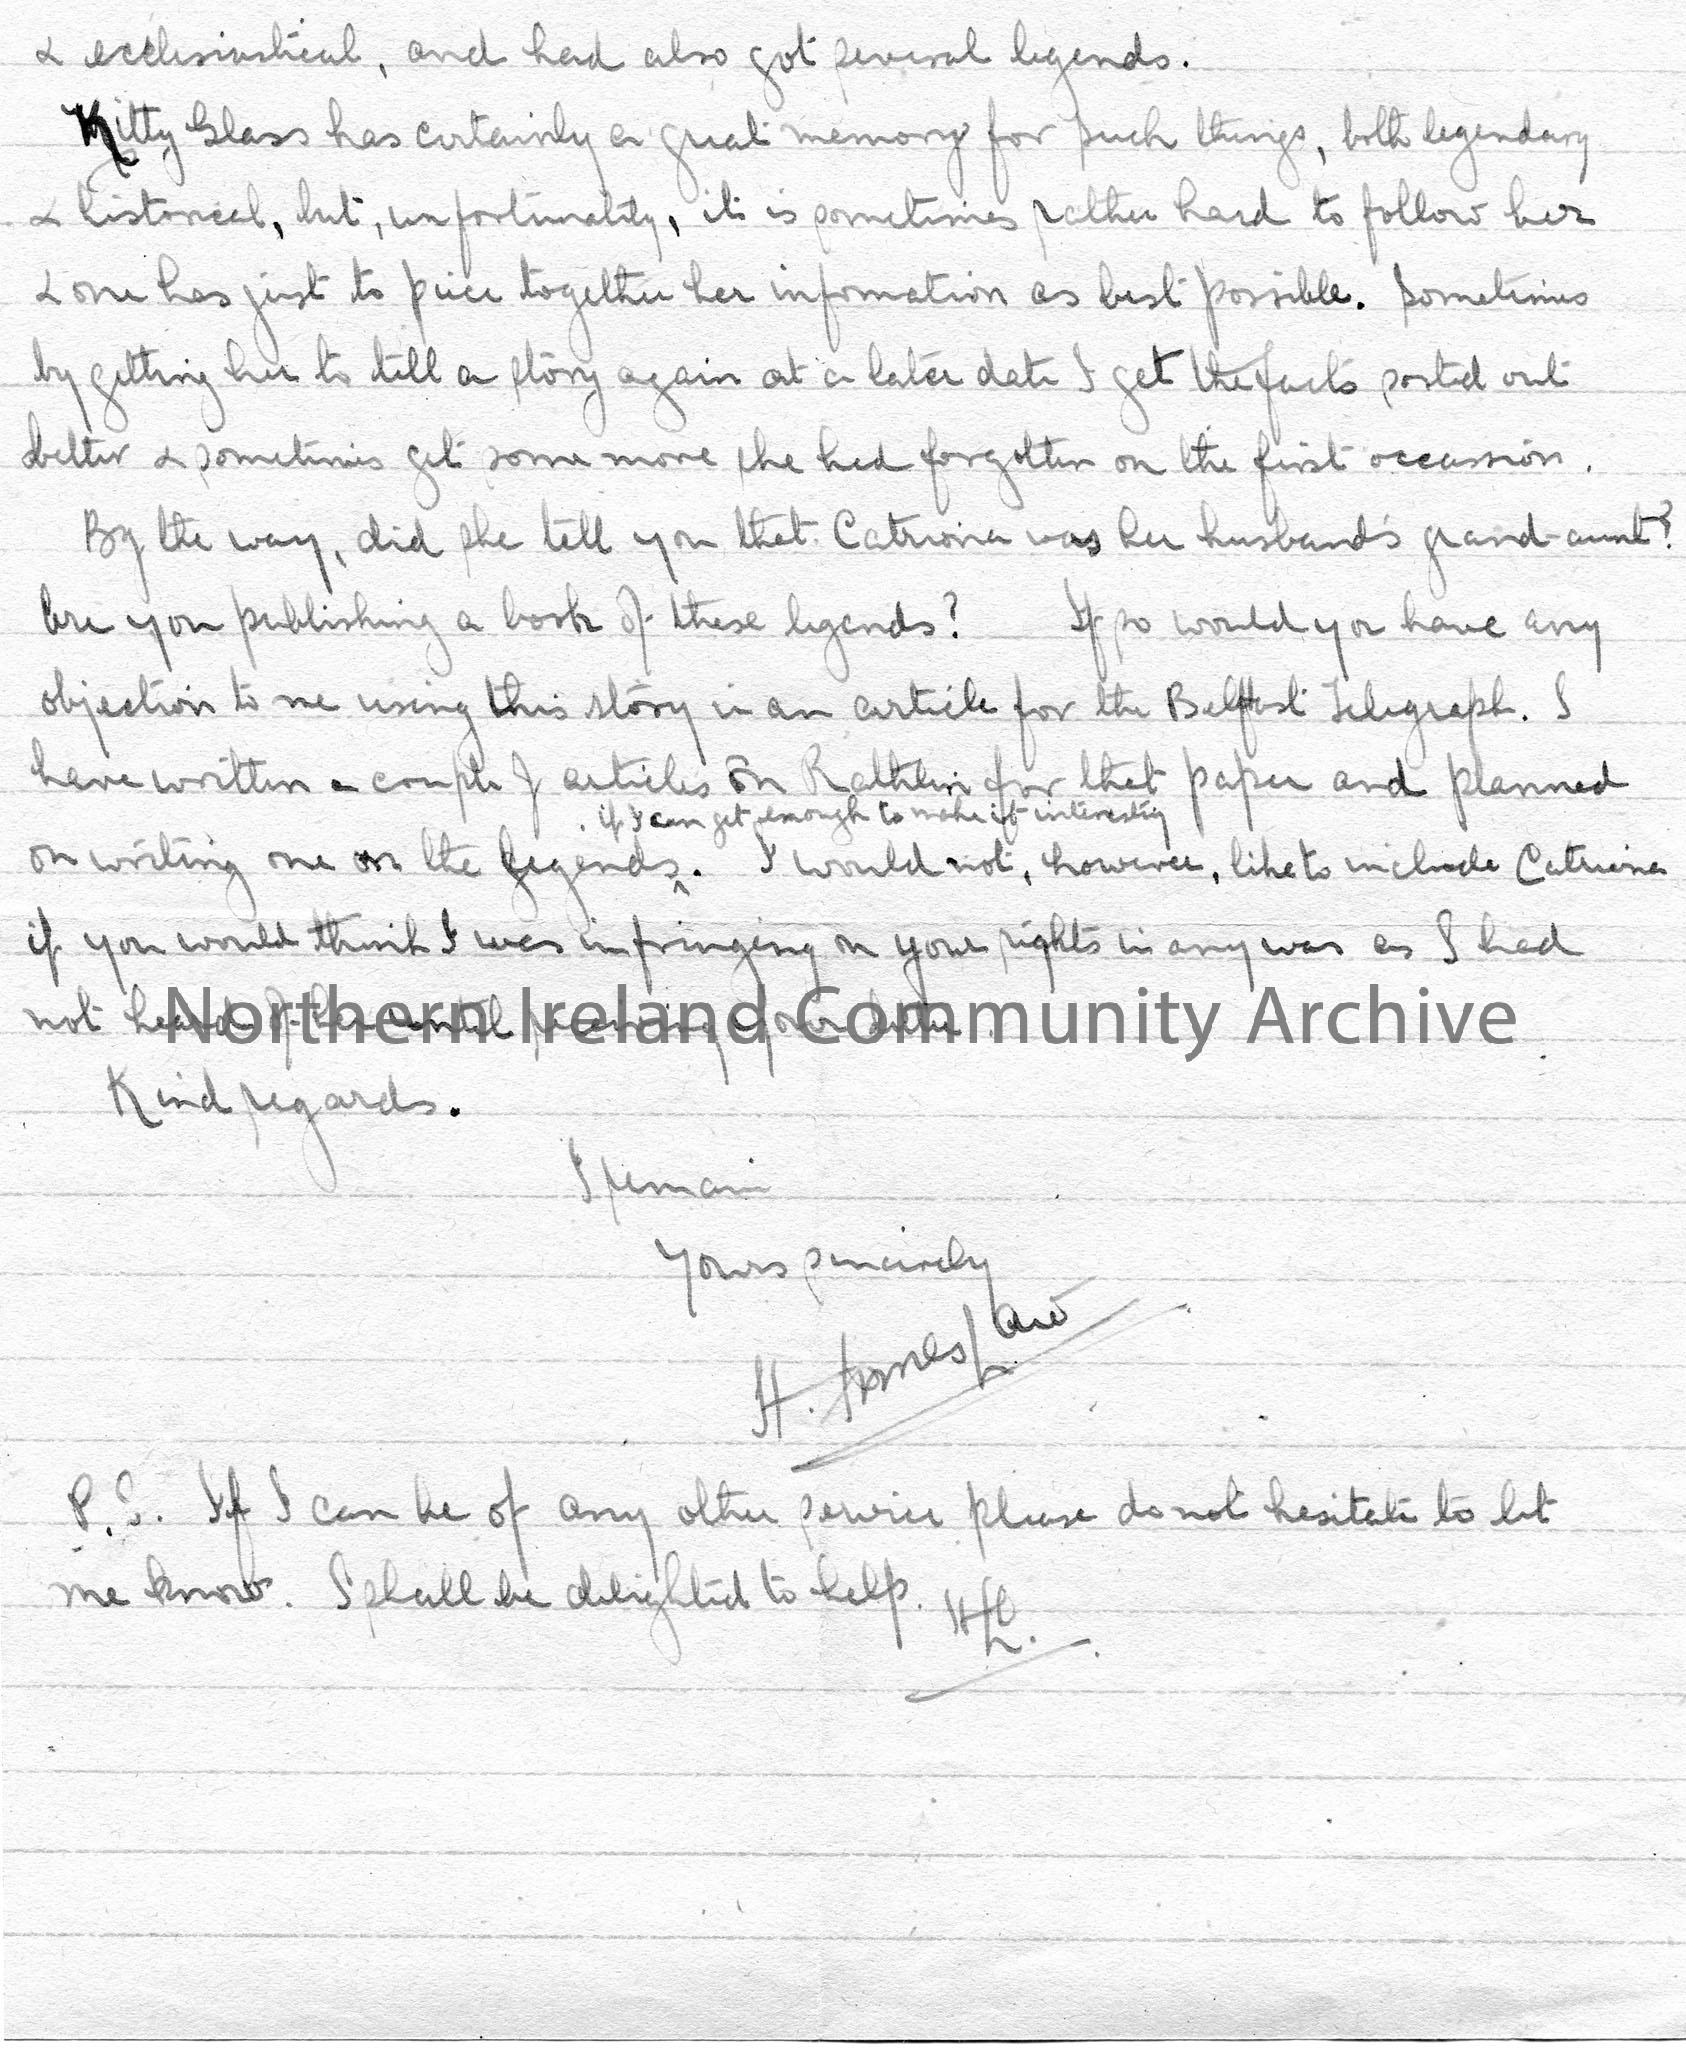 & ecclesiastical, and had also got several legends.
Kitty Glass has certainly a great memory for such things, both legendary
& historical, but, unfortunately, it is sometimes rather hard to follow her
& one has just to piece together her information as best possible. Sometimes
by getting her to tell a story again at a later date I get the facts sorted out
better & sometimes get some more she had forgotten on the first occassion.
By the way, did she tell you that Catriona was her husband's grand-aunt?
Are you publishing a book of these legends? If so would you have any
objection to me using this story in an article for the Belfast Telegraph. I
have written a couple of articles on Rathlin for that paper and planned
if I can get enough to make it interesting
on writing one on the legends. I would not, however, like to include Catriona
if you would think I was infringing on your rights in any was as I had
not heard of her until receiving your letter.
Northern Ireland Community Archive
Kind regards.
I remain
Yours sincerely
H. Law
P.S. If I can be of any other service please do not hesitate to let
me know. I shall be delighted to help.